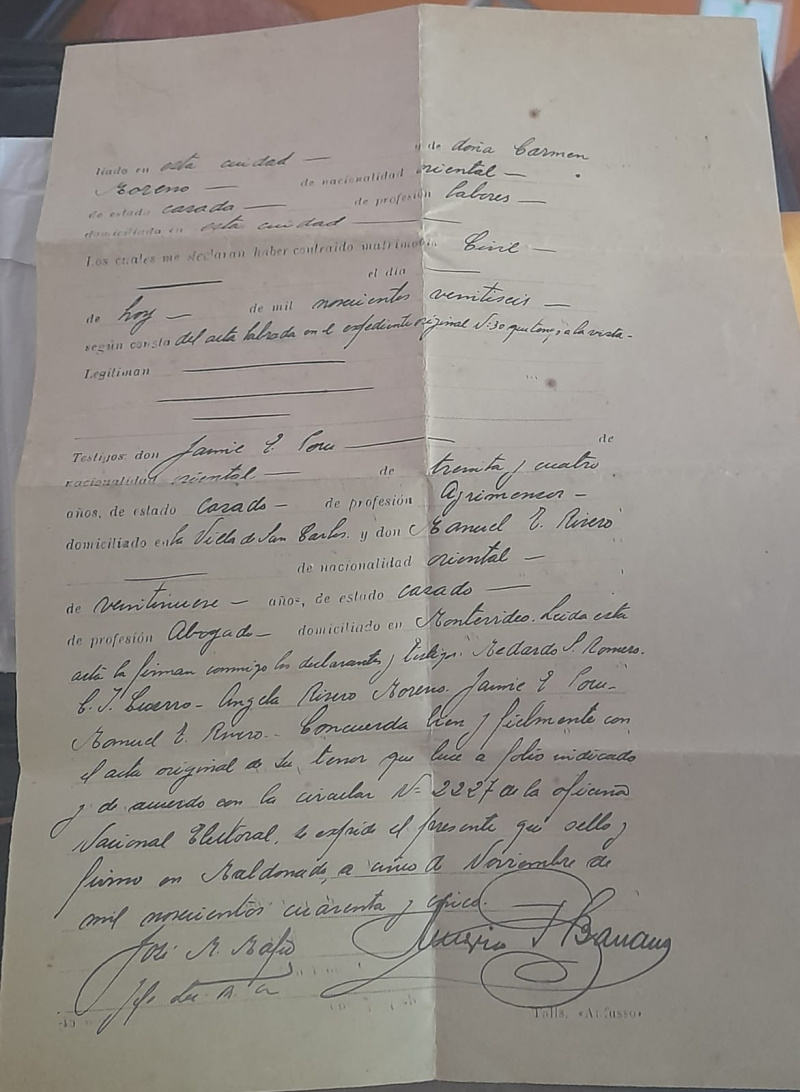 liado en esta cuidad — y de doña Carmen
Moreno — de nacionalidad oriental —
de estado casada — de profesión labores —
domiciliada en esta cuidad —
Los cuales me declaran haber contraido matrimonio Civil —
— el día —
de hoy — de mil novecientos veintiseis —
según consta del acta labrada en el expediente original Nº 30 que tengo a la vista.
Legitiman —
Testigos: don Jaime E. Pou — de
nacionalidad oriental — de treinta y cuatro
años, de estado casado — de profesión Agrimensor —
domiciliado en la Villa de San Carlos. y don Manuel E. Rivero
— de nacionalidad oriental —
de veintinueve — años, de estado casado —
de profesión Abogado — domiciliado en Montevideo. Leida esta
acta la firman conmigo los declarantes y testigos. Medardo S. Romero.
C. J. Lucerro — Angela Rivero Moreno. Jaime E. Pou —
Manuel E. Rivero. — Concuerda bien y fielmente con
el acta original de su tenor que luce a folio indicado
y de acuerdo con la circular Nº 2227 de la oficina
Nacional Electoral, se expide el presente que sello y
firmo en Maldonado, a cinco de Noviembre de
mil novecientos cuarenta y cinco.
José M.
Talls.